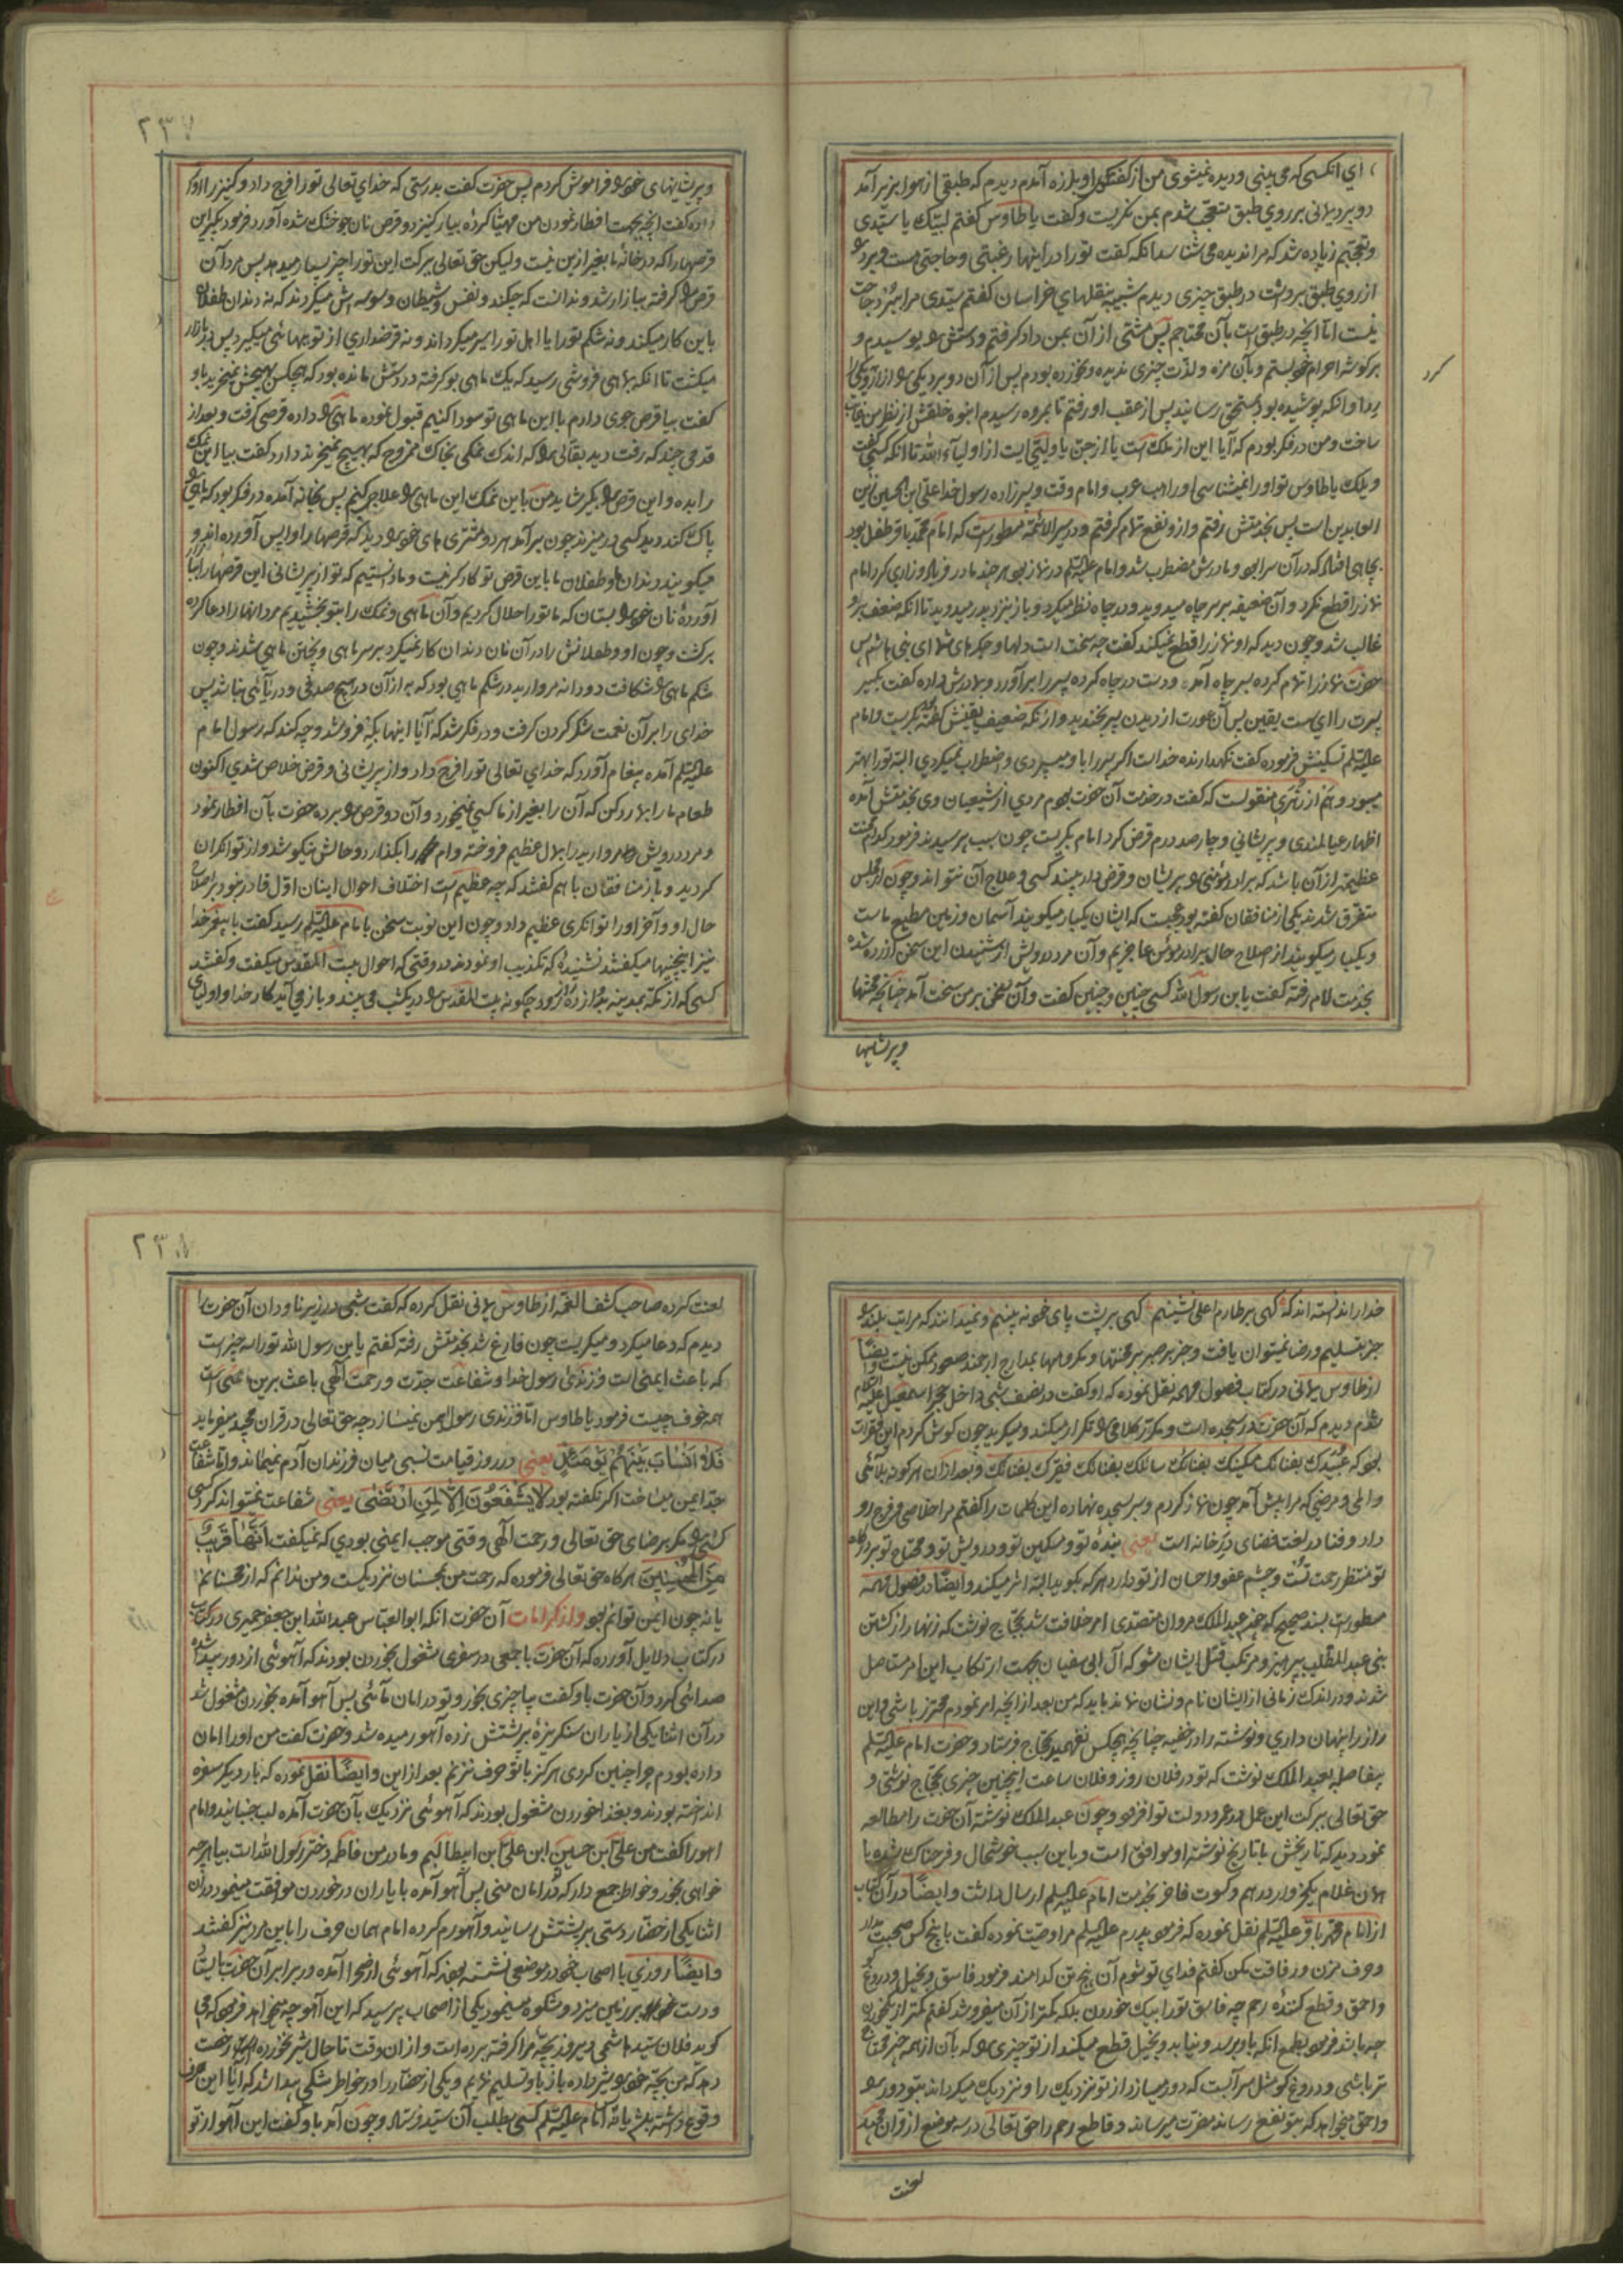 ای انکسی که می بینی و دیده نمیشوی من از گفتگوی او بلرزه آمدم دیدم که طبقی از هوا بزیر آمد
دو برد یمانی بر روی طبق متعجب شدم بمن نگریست و گفت یا طاوس گفتم لبیک یا سیدی
و تعجبم زیاده شد که مرا ندیده می شناسد انکه گفت تو را در اینها رغبتی و حاجتی هست و برد
از روی طبق برداشت در طبق چیزی دیدم شبیه بنقلهای خراسان گفتم سیدی مرا ببرد حاجت
نیست اما آنچه در طبق است بآن محتاجم پس مشتی از آن بمن داد گرفتم و دستش را بوسیدم و
بر گوشه احرام خود بستم و بآن مزه و لذت چیزی ندیده و نخورده بودم پس از آن دو برد یکی را ازار و یکی را
ردا و انکه پوشیده بود بمستحق رسانید پس از عقب او رفتم تا بمروه رسیدم انبوه خلقش از نظر من غایب
ساخت و من در فکر بودم که آیا این از ملک است یا از جن یا ولیی است از اولیاء الله تا انکه کسی گفت
ویلک یا طاوس تو او را نمیشناسی او راهب عرب و امام وقت و پیرزاده رسول خدا علی بن الحسین زین
العابدین است پس بخدمتش رفتم و از و نفع تمام گرفتم و در سیر الائمه مسطور است که امام محمد باقر طفل بود
بچاهی افتاد که در آن سرا بود و مادرش مضطرب شد و امام علیه السلم در نماز بود هر چند مادر فریاد و زاری کرد امام
نماز را قطع نکرد و آن ضعیفه بر سر چاه میدوید و در چاه نظر میکرد و باز بنزد پدر میدوید تا انکه ضعف بر او
غالب شد و چون دید که او نماز را قطع نمیکند گفت چه سخت است دلها و جگرهای شما ای بنی هاشم پس
حضرت نماز را تمام کرده بسر چاه آمد و دست در چاه کرده پسر را بر آورد و بمادرش داده گفت بگیر
پسرت را ای سست یقین پس آن عورت از دیدن پسر بخندید و از انکه ضعیف یقینش گفته بگریست و امام
علیه السلم تسکینش فرموده گفت نگهدارنده خداست اگر پسر را باو میسپردی و اضطراب نمیکردی البته تو را بهتر
میبود و هم از زهری منقولست که گفت در خدمت آن حضرت بودم مردی از شیعیان وی بخدمتش آمده
اظهار عیالمندی و پریشانی و چار صد درم قرض کرد امام بگریست چون سبب پرسیدند فرمود کدام محنت
عظیمتر از آن باشد که برادر مؤمنی را پریشان و قرض دار بیند کسی و علاج آن نتواند و چون از مجلس
متفرق شدند یکی از منافقان گفته بود عجبست که ایشان یکبار میگویند آسمان و زمین مطیع ماست
و یکبار میگویند از اصلاح حال برادر مؤمن عاجزیم و آن مرد درویش از شنیدن این سخن آزرده شده
بخدمت امام رفته گفت یابن رسول الله کسی چنین و چنین گفت و آن سخن بر من سخت آمد چنانچه محنتها
و پریشانیها
کرد
۲۳۷
و پریشانیهای خود را فراموش کردم پس حضرت گفت بدرستی که خدای تعالی تو را فرج داد و کنیز را آواز
داده گفت آنچه بجهت افطار نمودن من مهیا کرده بیار کنیز دو قرص نان جو خشک شده آورد فرمود بگیر این
قرصها را که در خانه ما بغیر از ین نیست و لیکن حق تعالی ببرکت این تو را چیز بسیار میدهد پس مرد آن
قرص را گرفته ببازار شد و ندانست که چکند و نفس و شیطان وسوسه اش میکردند که نه دندان طفلان
باین کار میکند و نه شکم تو را یا اهل تو را سیر میگرداند و نه قرضداری از تو ببهائی میگیرد پس در بازار
میگشت تا انکه بماهی فروشی رسید که یک ماهی بو گرفته در دستش مانده بود که هیچکس بهیچش نمیخرید باو
گفت بیا قرص جوی دارم با این ماهی تو سودا کنیم قبول نموده ماهی را داده قرصی گرفت و بعد از
قدمی چند که رفت دید بقالی را که اندک نمکی بخاک ممزوج که بهیچ نمیخرند دارد گفت بیا این نمک
را بده و این قرص را بگیر شاید من باین نمک این ماهی را علاج کنم پس بخانه آمده در فکر بود که ماهی را
پاک کند دید کسی در میزند چون بر آمد هر دو مشتری های خود را دید که قرصها را واپس آورده اند و
میگویند دندان ما و طفلان ما باین قرص تو کارگر نیست و ما دانستیم که تو از پریشانی این قرصها را ببازار
آورده نان خود را بستان که ما تو را حلال کردیم و آن ماهی و نمک را بتو بخشیدیم مرد انها را دعا کرده
برگشت و چون او و طفلانش را در آن نان دندان کار نمیکرد بر سر ماهی و پختن ماهی شدند و چون
شکم ماهی را شکافت دو دانه مروارید در شکم ماهی بود که به از آن در هیچ صدفی و دریائی نباشد پس
خدای را بر آن نعمت شکر کردن گرفت و در فکر شد که آیا اینها بکه فروشد و چه کند که رسول امام
علیه السلم آمده پیغام آورد که خدای تعالی تو را فرج داد و از پریشانی و قرض خلاص شدی اکنون
طعام ما را بما رد کن که آن را بغیر از ما کسی نمیخورد و آن دو قرص را برده حضرت بآن افطار نمود
و مرد درویش مروارید را بمال عظیم فروخته وام را بگذارد و حالش نیکو شد و از توانگران
گردید و باز منافقان باهم گفتند که چه عظیم است اختلاف احوال اینان اول قادر نبود بر اصلاح
حال او و آخر او را توانگری عظیم داد و چون این نوبت سخن با امام علیه السلم رسید گفت با پیغمبر خدا
نیز اینچنینها میگفتند نشنیده که تکذیب او نمودند در وقتی که احوال بیت المقدس میگفت و گفتند
کسی که از مکه بمدینه بدوازده روز رود چگونه بیت المقدس را در یکشب می بیند و باز می آید کار خدا و اولیای
خدا را ندانسته اند که گهی بر طارم اعلی نشینیم گهی بر پشت پای خود نه بینیم و نمیدانند که مراتب بلند را
جز بتسلیم و رضا نمیتوان یافت و جز بر صبر بر محنتها و مکروهها بمدارج ارجمند صعود ممکن نیست و ایضاً
از طاوس یمانی در کتاب فصول مهمه نقل نموده که او گفت در نصف شبی داخل حجر اسمعیل علیه السلام
شدم دیدم که آن حضرت در سجده است و مکرر کلامی را تکرار میکند و میگرید چون گوش کردم این فقرات
بود که عبیدک بفنائک مسکینک بفنائک سائلک بفنائک فقیرک بفنائک و بعد از آن هر گونه بلائی
و المی و مرضی که مرا پیش آمد چون نماز کردم و سر بسجده نهاده این کلمات را گفتم مرا خلاصی و فرج رو
داد و فنا در لغت فضای در خانه است یعنی بنده تو و مسکین تو و درویش تو و محتاج تو بر درگاه
تو منتظر رحمت تست و چشم عفو و احسان از تو دارد هر که بگوید البته اثر میکند و ایضاً در فصول مهمه
مسطور است بسند صحیح که چون عبدالملک مروان متصدی امر خلافت شد بحجاج نوشت که زنهار از کشتن
بنی عبدالمطلب بپرهیز و مرتکب قتل ایشان مشو که آل ابی سفیان بجهت ارتکاب این امر مستاصل
شدند و در اندک زمانی از ایشان نام و نشان نماند باید که من بعد از آنچه امر نمودم محترز باشی و این
راز را پنهان داری و نوشته را در خفیه چنانچه هیچکس نفهمید بحجاج فرستاد و حضرت امام علیه السلم
بیفاصله بعبدالملک نوشت که تو در فلان روز و فلان ساعت اینچنین چیزی بحجاج نوشتی و
حق تعالی ببرکت این عمل در عمر و دولت تو افزود و چون عبدالملک نوشته آن حضرت را مطالعه
نمود دید که تاریخش با تاریخ نوشته او موافق است و باین سبب خوشحال و فرحناک شده با
همان غلام یکخروار درهم و کسوت فاخر بخدمت امام علیه السلم ارسال داشت و ایضاً در آن کتاب
از امام محمد باقر علیه السلم نقل نموده که فرمود پدرم علیه السلم مرا وصیت نموده گفت با پنج کس صحبت مدار
و حرف مزن و رفاقت مکن گفتم فدای تو شوم آن پنج تن کدامند فرمود فاسق و بخیل و دروغ گو
و احمق و قطع کننده رحم چه فاسق تو را بیک خوردن بلکه کمتر از آن میفروشد گفتم کمتر از یکخوردن
چه باشد فرمود بطمع انکه باو برسد و نیابد و بخیل قطع میکند از تو چیزی را که بآن از همه چیز محتاج
تر باشی و دروغ گو مثل سرابست که دور میسازد از تو نزدیک را و نزدیک میگرداند بتو دور را
و احمق میخواهد که بتو نفع رساند مضرت میرساند و قاطع رحم را حق تعالی در سه موضع از قران مجید
لعنت
۲۳۸
لعنت کرده صاحب کشف الغمه از طاوس یمانی نقل کرده که گفت شبی در زیر ناودان آن حضرت را
دیدم که دعا میکرد و میگریست چون فارغ شد بخدمتش رفته گفتم یابن رسول الله تو را سه چیز است
که باعث ایمنی است فرزندی رسول خدا و شفاعت جدت و رحمت الهی باعث برین غمی است
همه خوف چیست فرمود یا طاوس اما فرزندی رسول ایمن نمیسازد چه حق تعالی در قران مجید میفرماید
فلا انساب بینهم یومئذ یعنی در روز قیامت نسبی میان فرزندان آدم نمیماند و اما شفاعت
جد ایمن میساخت اگر نگفته بود لا یشفعون الا لمن ارتضی یعنی شفاعت نمیتواند کرد کسی
کسی را مگر برضای حق تعالی و رحمت الهی وقتی موجب ایمنی بودی که نمیگفت انها قریب
من المحسنین هر گاه حق تعالی فرموده که رحمت من بمحسنان نزدیکست و من ندانم که از محسنانم
یا نه چون ایمن توانم بود و از کرامات آن حضرت انکه ابوالعباس عبدالله ابن جعفر حمیری در کتاب
در کتاب دلایل آورده که آن حضرت با جمعی در سفری مشغول بخوردن بودند که آهوئی از دور پیدا شده
صدائی کرد و آن حضرت باو گفت بیا چیزی بخور و تو در امان مائی پس آهو آمده بخوردن مشغول شد
در آن اثنا یکی از یاران سنگریزه بر پشتش زده آهو رمیده شد و حضرت گفت من او را امان
داده بودم چرا چنین کردی هرگز با تو حرف نزنم بعد از این و ایضاً نقل نموده که بار دیگر سفره
انداخته بودند و بغذا خوردن مشغول بودند که آهوئی نزدیک بآن حضرت آمده لب جنبانید و امام
اهو را گفت من علی ابن حسین ابن علی ابن ابیطالبم و مادر من فاطمه دختر رسول الله است بیا هر چه
خواهی بخور و خواطر جمع دار که در امان منی پس آهو آمده با یاران در خوردن موافقت مینمود در آن
اثنا یکی از حضار دستی بر پشتش رسانید و آهو رم کرده امام همان حرف را باین مرد نیز گفتند
و ایضاً روزی با اصحاب خود در موضعی نشسته بودند که آهوئی از صحرا آمده در برابر آن حضرت بایستاد
و دست بر زمین میزد و شکوه مینمود یکی از اصحاب پرسید که این آهو چه میخواهد فرمود که می
گوید فلان سید هاشمی دیروز بچه مرا گرفته برده است و از ان وقت تا حال شیر نخورده رخصت
دهد که من بچه خود را شیر داده باز باو تسلیم نمایم و یکی از حضار را در خواطر شکی پیدا شد که آیا این حرف
وقوع داشته باشد یا نه امام علیه السلم کسی بطلب آن سید فرستاد و چون آمد باو گفت این آهو از تو